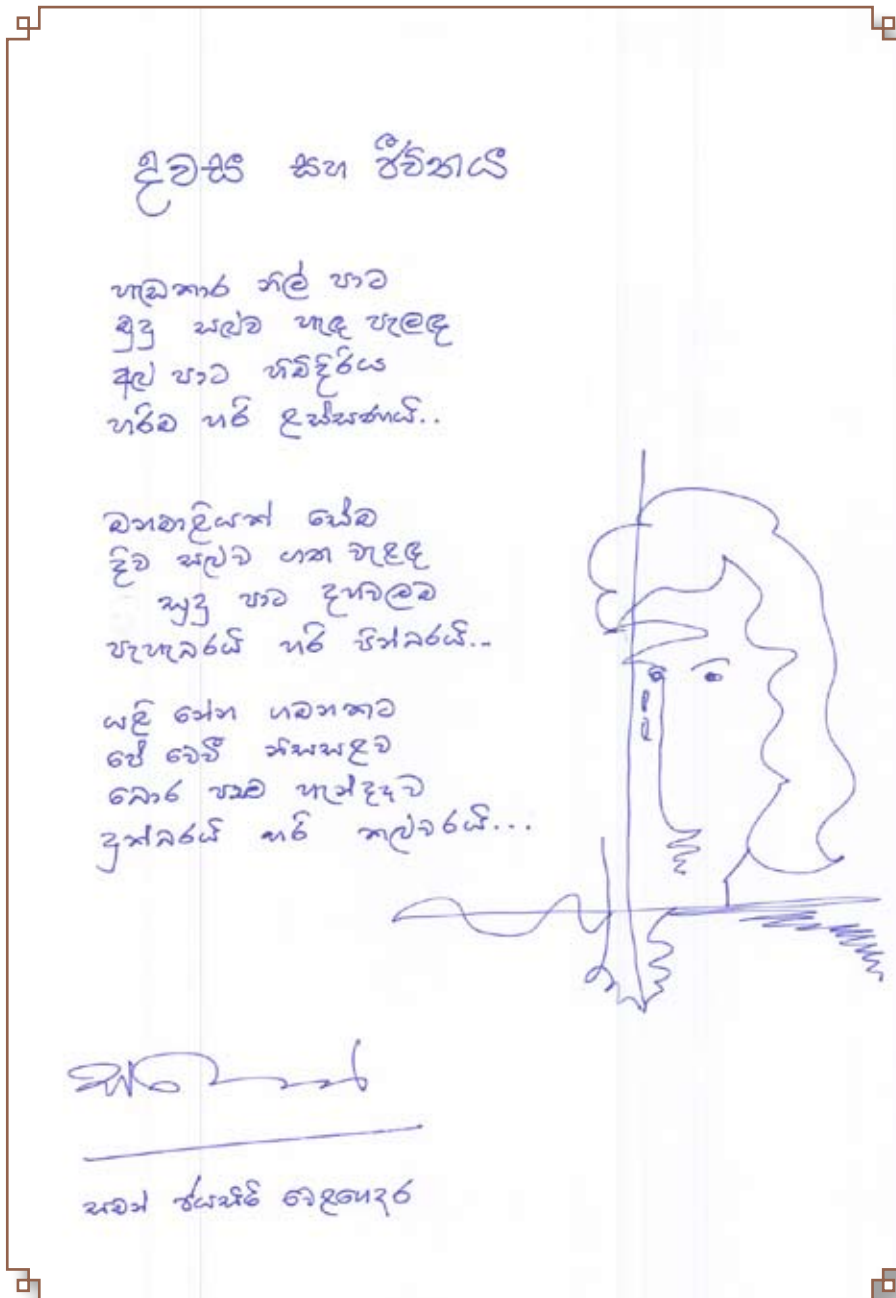 දවසයි සහ ජීවිතයයි
හැඩකාර නිල් පාට
මුදු සළුව හැඳ පැලඳ
අළු පාට හිමිදිරිය
හරිම හරි ලස්සණයි..
මනමාළියක් සේම
දිව සළුව ගත වැළඳ
සුදු පාට දහවලම
පැහැබරයි හරි පින්බරයි...
යළි නේන ගමනකට
පේ වෙවී නිසසළව
බොර පාට හැන්දෑව
දුක්බරයි හරි කළුවරයි...
සමන් ජයසිරි වෙළගෙදර